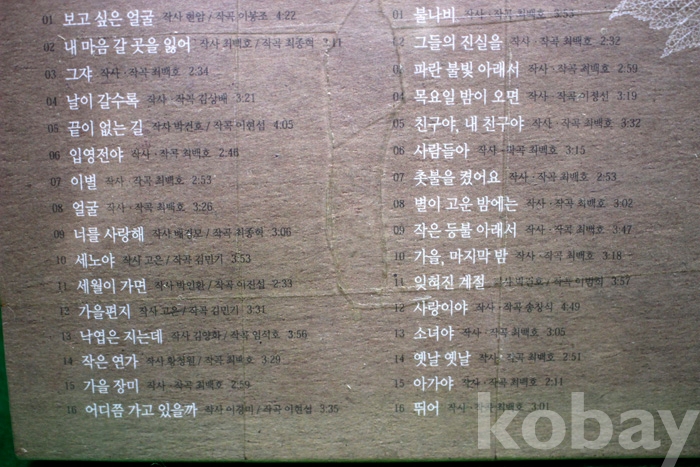 01 보고 싶은 얼굴 작사 현암 / 작곡 이봉조 4:22
02 내 마음 갈 곳을 잃어 작사 최백호 / 작곡 최종혁
03 그쟈 작사 · 작곡 최백호 2:34
04 날이 갈수록 작사 · 작곡 김상배 3:21
05 끝이 없는 길 작사 박건호 / 작곡 이현섭 4:05
06 입영전야 작사 · 작곡 최백호 2:46
07 이별 작사 · 작곡 최백호 2:53
08 얼굴 작사 · 작곡 최백호 3:26
09 너를 사랑해 작사 / 작곡 최종혁 3:06
10 세노야 작사 고은 / 작곡 김민기 3:53
11 세월이 가면 작사 박인환 / 작곡 이진섭 2:33
12 가을편지 작사 고은 / 작곡 김민기 3:31
13 낙엽은 지는데 작사 김양화 / 작곡 임석호 3:56
14 작은 연가 작사 / 작곡 최백호 3:29
15 가을 장미 작사 · 작곡 최백호 2:59
16 어디쯤 가고 있을까 작사 이경미 / 작곡 이현섭 3:35
01 불나비 작사 · 작곡 최백호 3:53
02 그들의 진실을 작사 · 작곡 최백호 2:32
03 파란 불빛 아래서 작사 · 작곡 최백호 2:59
04 목요일 밤이 오면 작사 · 작곡 이정선 3:19
05 친구야, 내 친구야 작사 · 작곡 최백호 3:32
06 사람들아 작사 · 작곡 최백호 3:15
07 촛불을 켰어요 작사 · 작곡 최백호 2:53
08 별이 고운 밤에는 작사 · 작곡 최백호 3:02
09 작은 등불 아래서 작사 · 작곡 최백호 3:47
10 가을, 마지막 밤 작사 · 작곡 최백호 3:18
11 잊혀진 계절 작사 / 작곡 이범희 3:57
12 사랑이야 작사 · 작곡 송창식 4:49
13 소녀야 작사 · 작곡 최백호 3:05
14 옛날 옛날 작사 · 작곡 최백호 2:51
15 아가야 작사 · 작곡 최백호 2:11
16 뛰어 작사 · 작곡 최백호 3:01
kobay